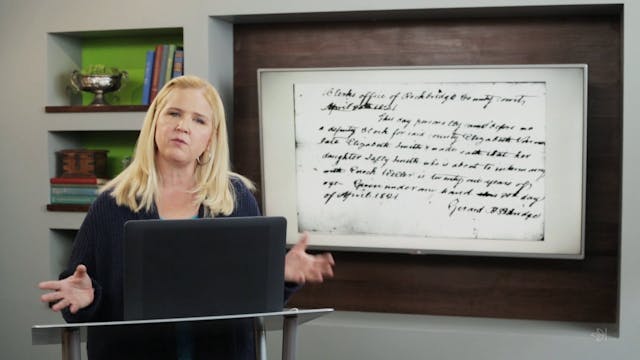 Clerks office of Rockbridge County court,
April 20th 1821
This day personally came before me
a deputy Clerk for said county Elizabeth
late Elizabeth Smith & made oath that her
daughter Sally Smith who is about to intermarry
with Enoch is twenty one years of
age. Given under my hand this 20th day
of April 1821